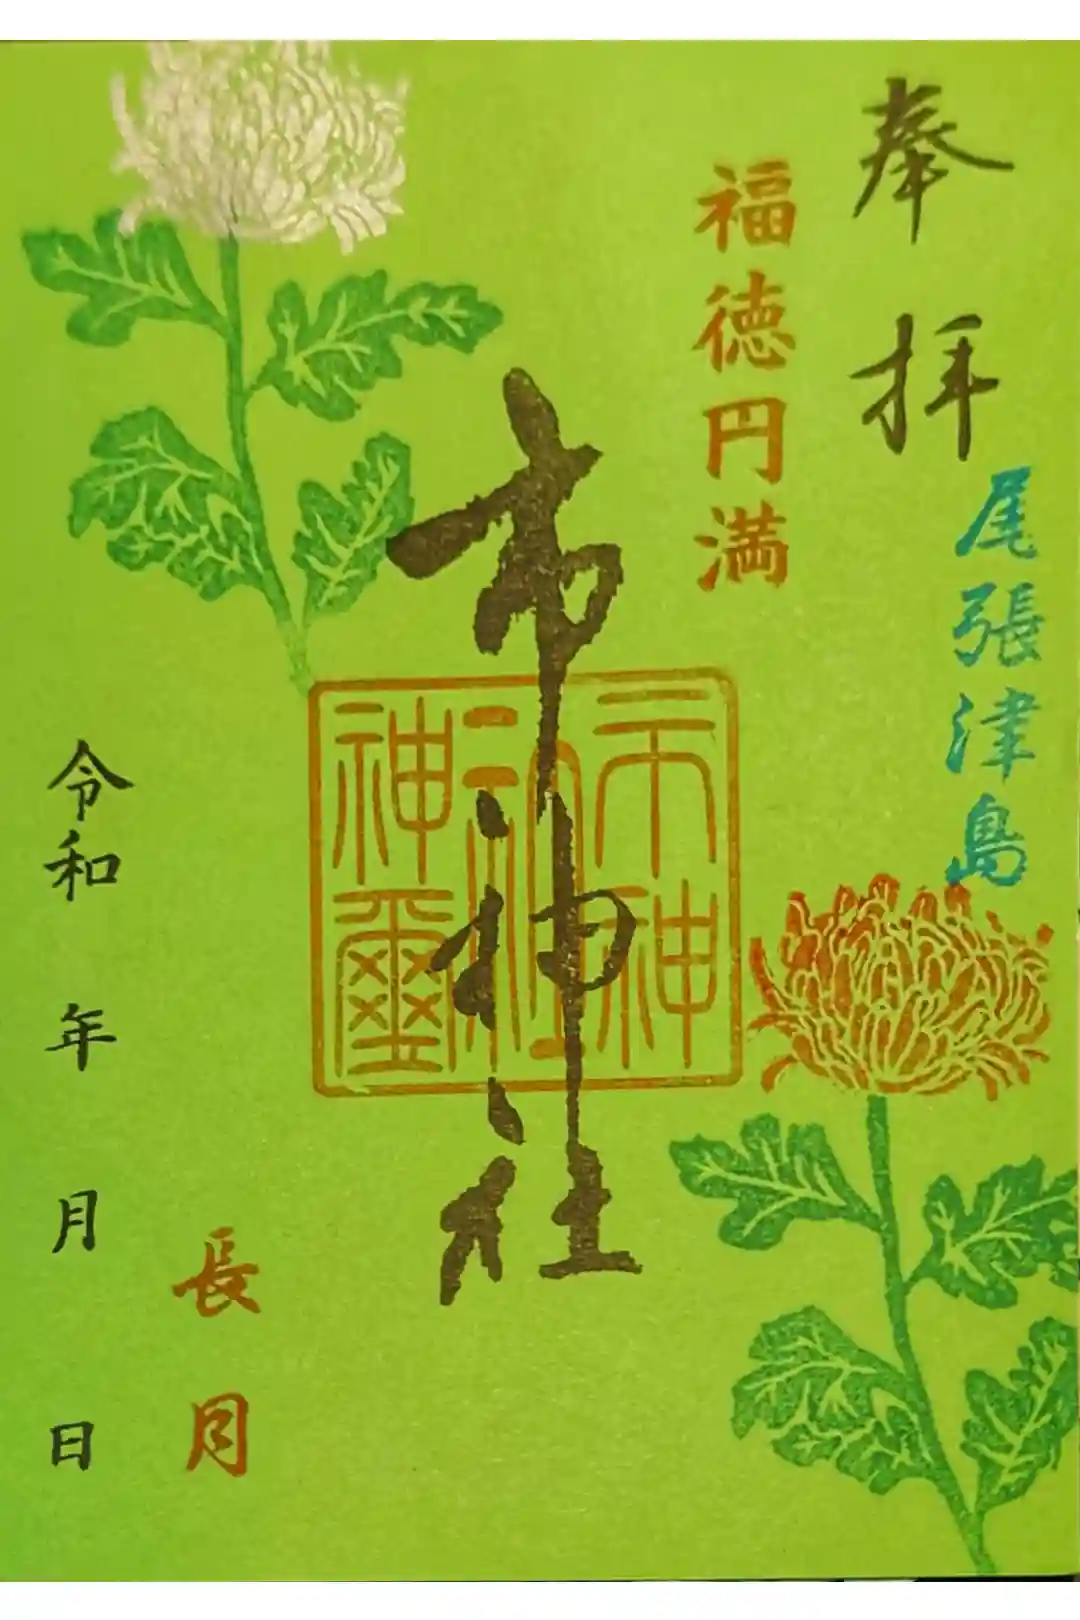 奉拝
尾張津島
福徳円満
市神社
市神社神璽
長月
令和 年 月 日